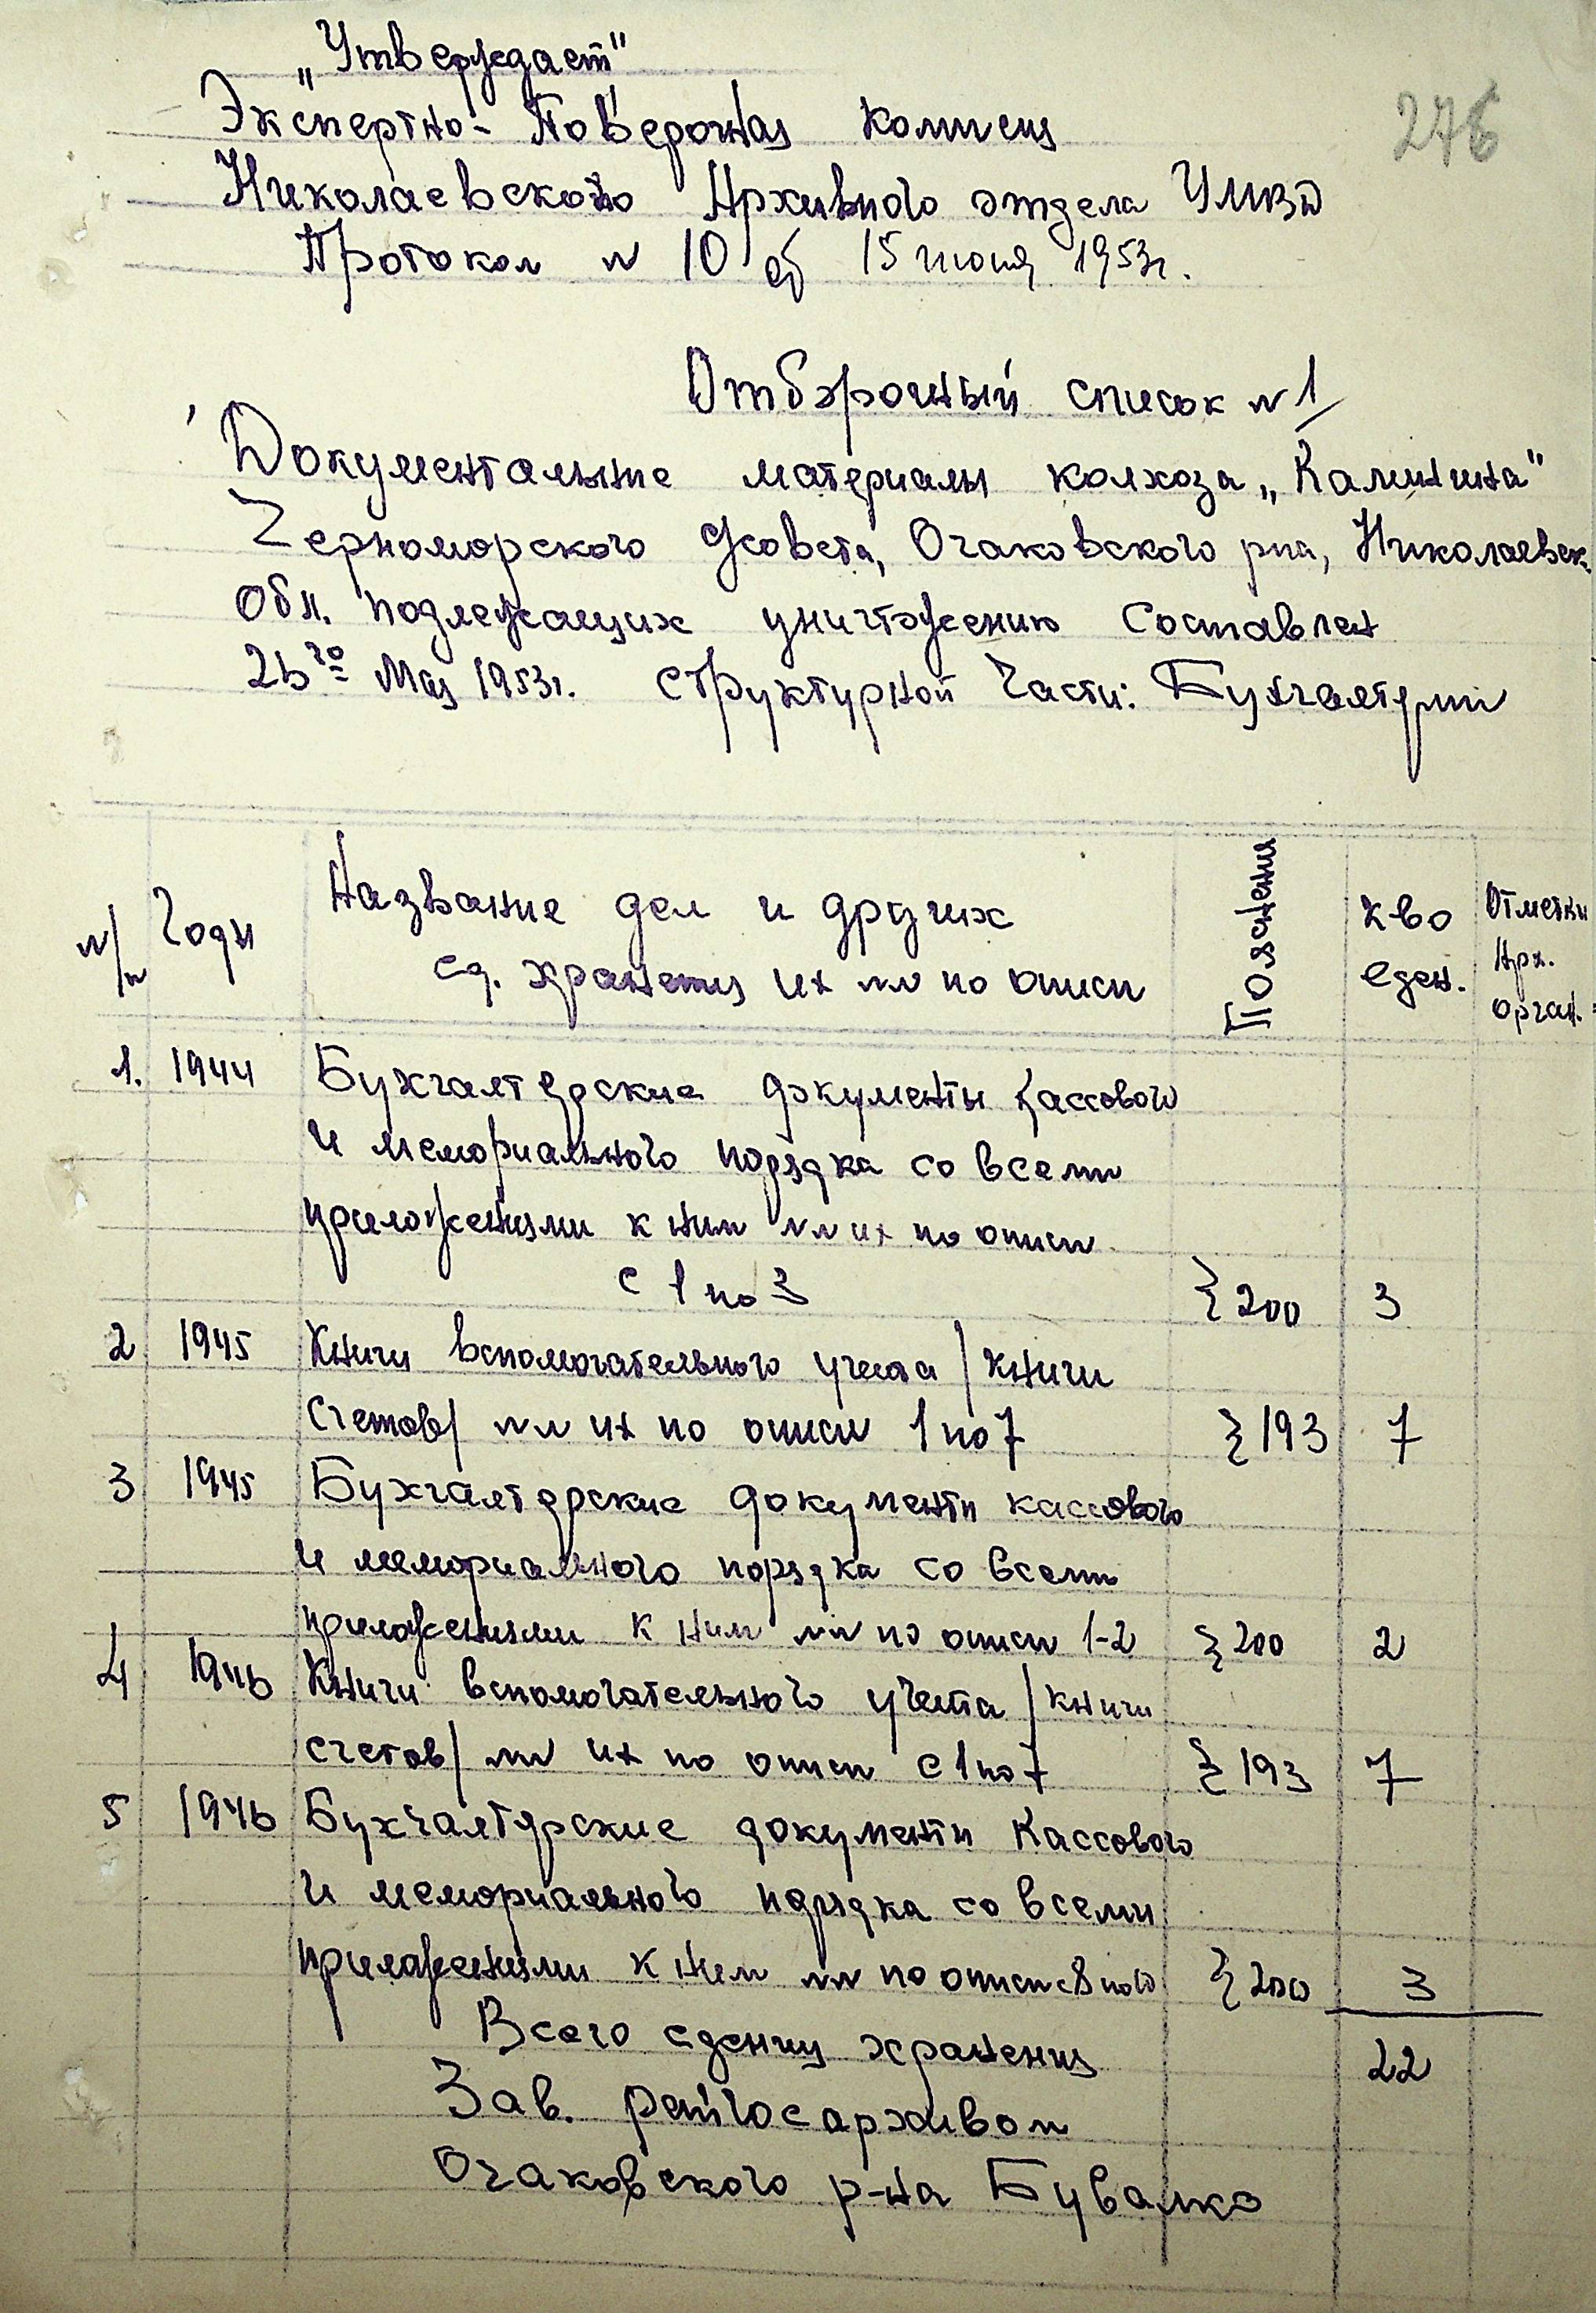 „Утверждает"
276
Экспертно-Поверочная комисия
Николаевского Архивного отдела УМВД
Протокол № 10 от 15 июня 1953г.
Отборочный список № 1
Документальные материалы колхоза „Калинина"
Черноморского с/совета, Очаковского р-на, Николаевск.
Обл. подлежащих уничтожению составлен
26го Мая 1953г. структурной части: Бухгалтерии
№/п Годы Название дел и других Пояснения кво Отметки
ед. хранения их №№ по описи еден. Арх.
орган.
1. 1944 Бухгалтерские документы кассового
и мемориального порядка со всеми
приложениями к ним №№ их по описи
с 1 по 3 } 200 3
2 1945 Книги вспомогательного учета / книги
счетов/ №№ их по описи 1 по 7 } 193 7
3 1945 Бухгалтерские документы кассового
и мемориального порядка со всеми
приложениями к ним №№ по описи 1-2 } 200 2
4 1946 Книги вспомогательного учета / книги
счетов/ №№ их по описи с 1 по 7 } 193 7
5 1946 Бухгалтерские документы Кассового
и мемориального порядка со всеми
приложениями к ним №№ по описи с 8 по 10 } 200 3
Всего единиц хранения 22
Зав. райгосархивом
Очаковского р-на Бувалко